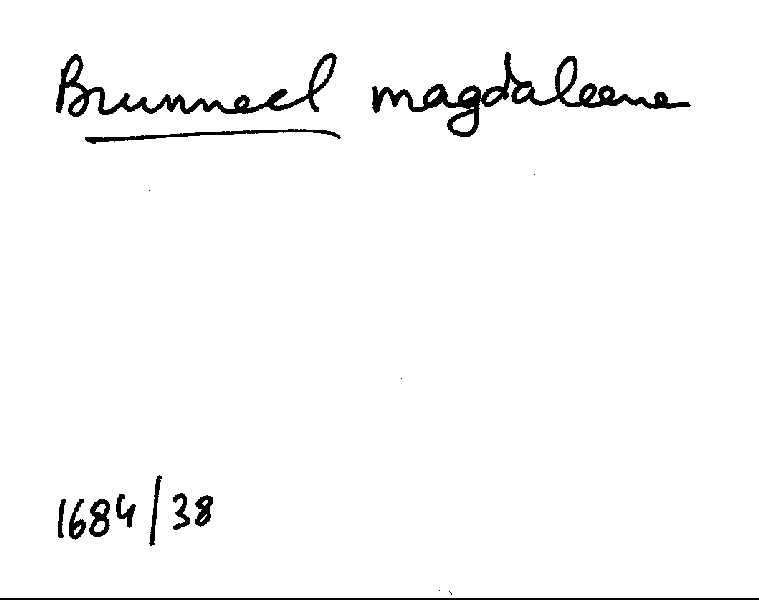 Brunneel magdaleene
1684/38